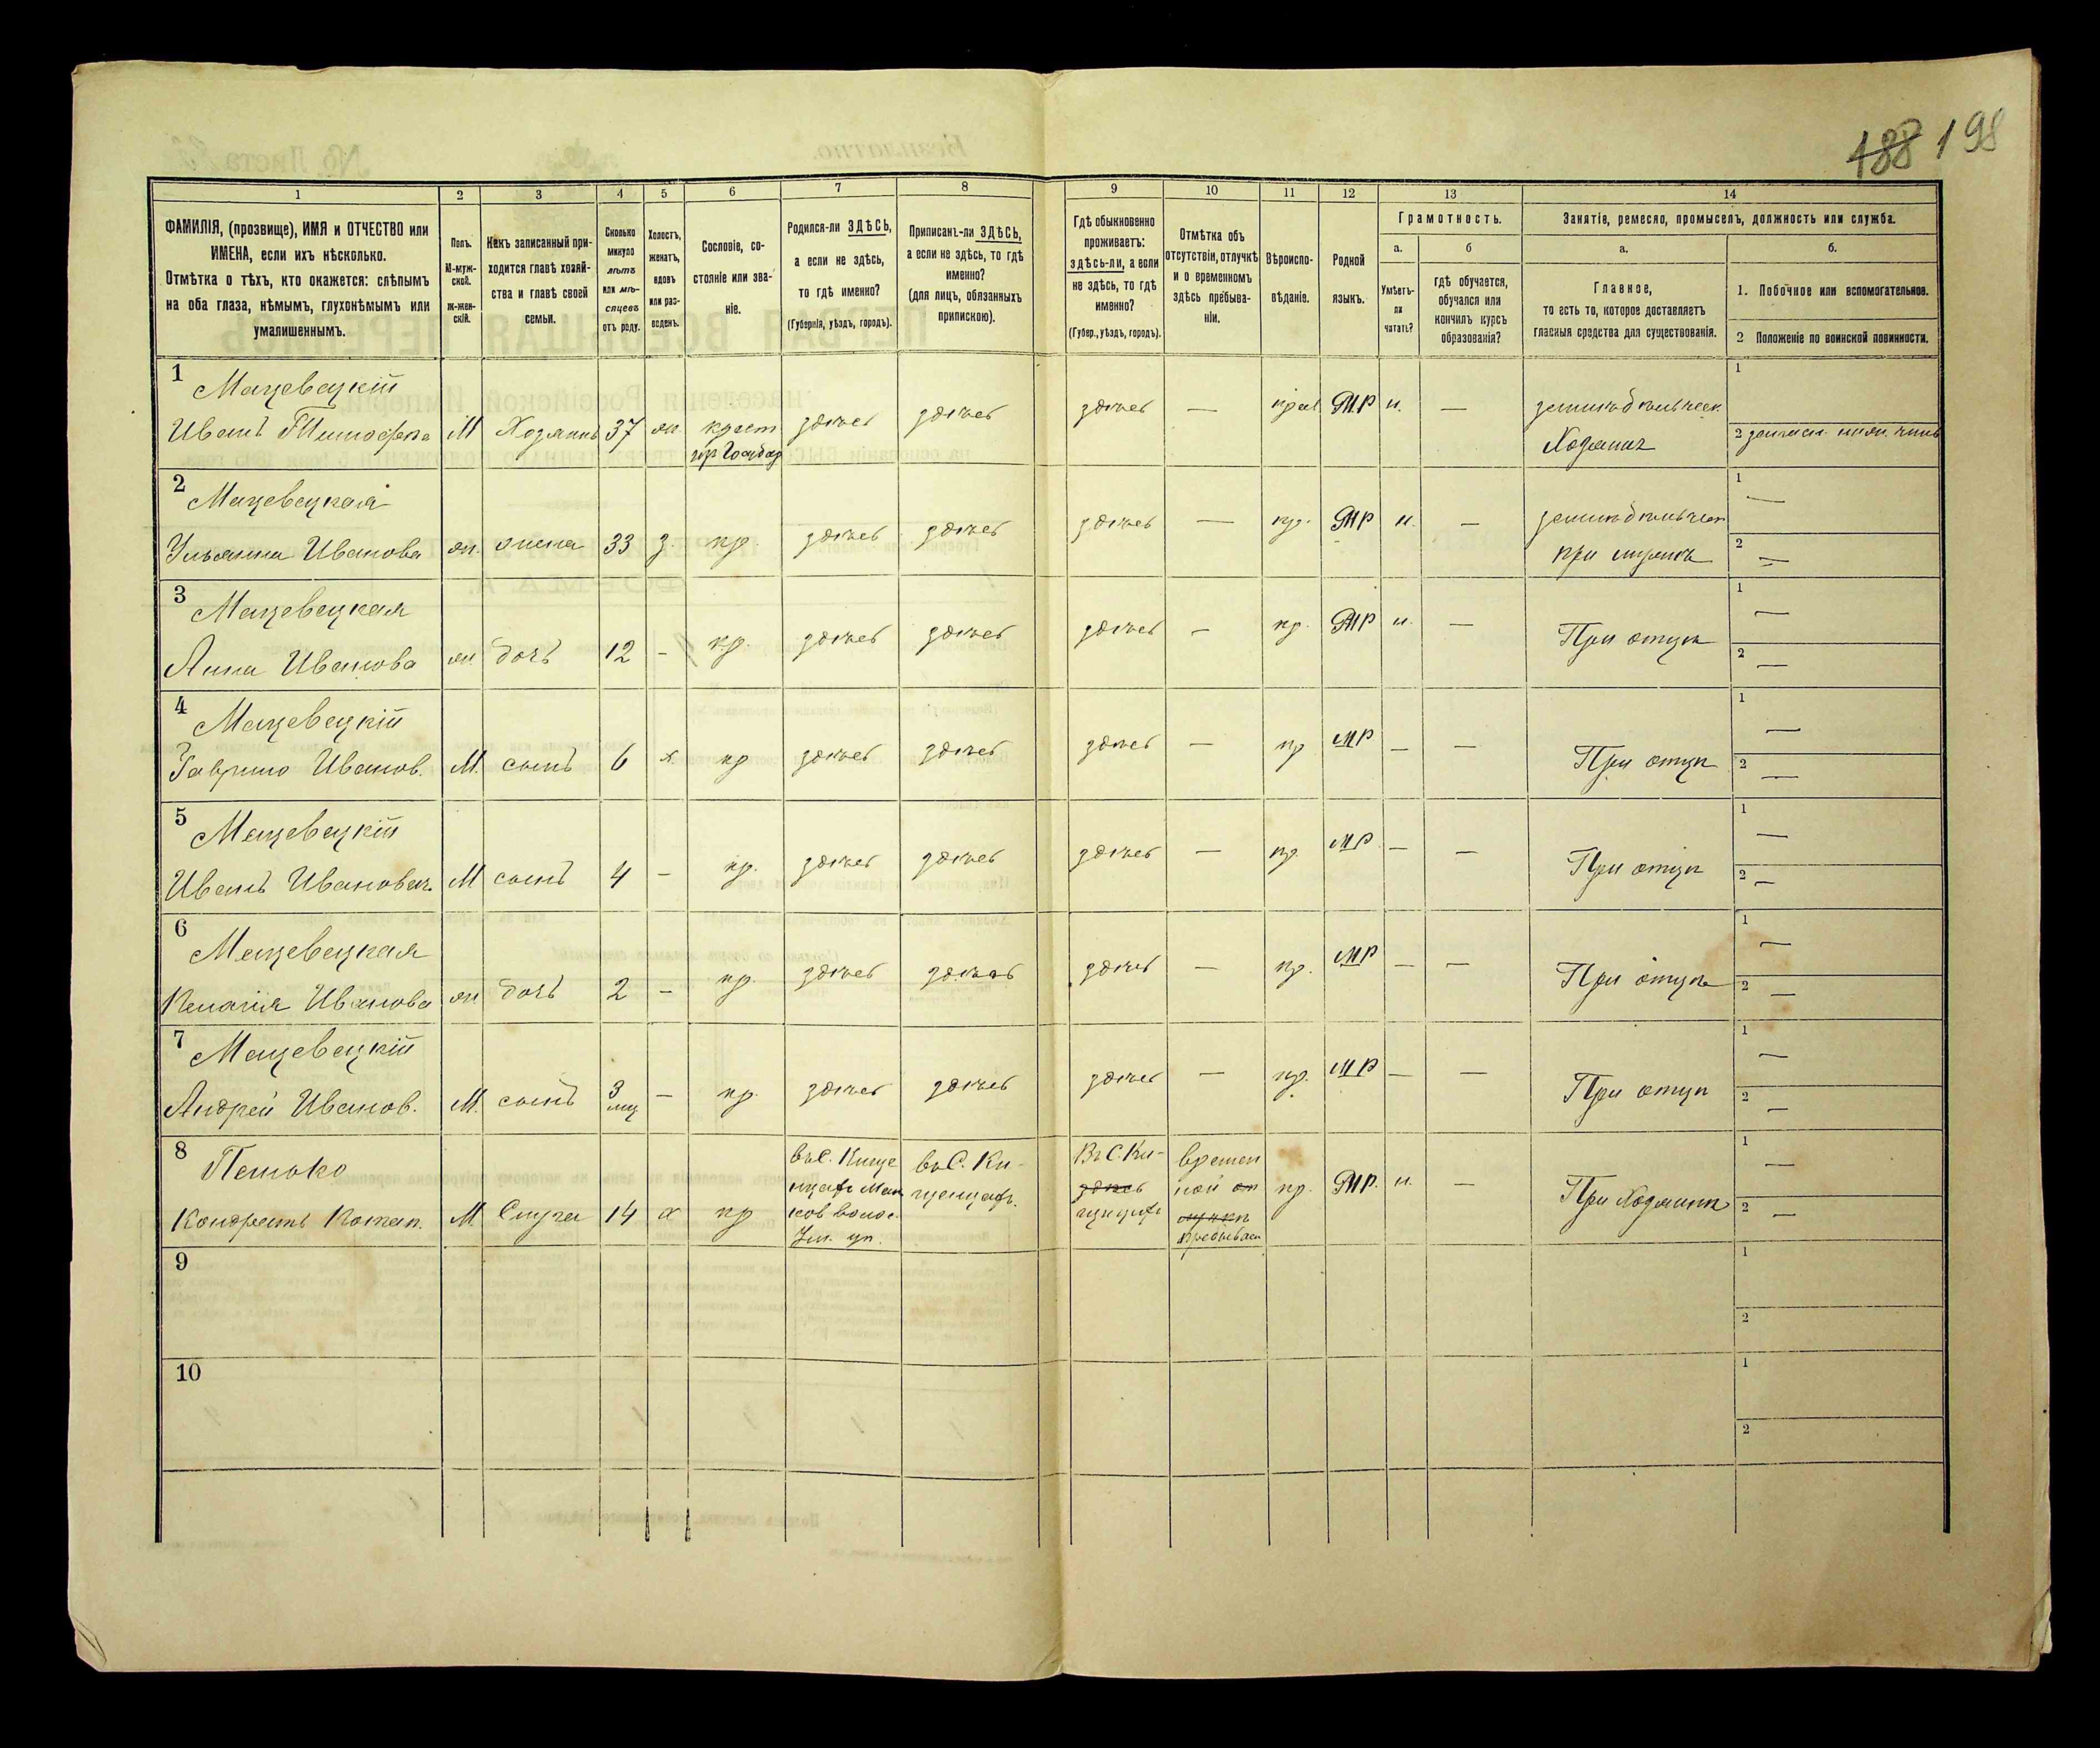 188 198
1 2 3 4 5 6 7 8 9 10 11 12 13 14
ФАМИЛІЯ, (прозвище), ИМЯ и ОТЧЕСТВО или
ИМЕНА, если ихъ нѣсколько.
Отмѣтка о тѣхъ, кто окажется: слѣпымъ
на оба глаза, нѣмымъ, глухонѣмымъ или
умалишеннымъ.
Полъ.
М-муж-
ской.
ж-жен-
скій.
Какъ записанный при-
ходится главѣ хозяй-
ства и главѣ своей
семьи.
Сколько
минуло
лѣтъ
или мѣ-
сяцевъ
отъ роду.
Холостъ,
женатъ,
вдовъ
или раз-
веденъ.
Сословіе, со-
стояніе или зва-
ніе.
Родился-ли ЗДѢСЬ,
а если не здѣсь,
то гдѣ именно?
(Губернія, уѣздъ, городъ).
Приписанъ-ли ЗДѢСЬ,
а если не здѣсь, то гдѣ
именно?
(для лицъ, обязанныхъ
припискою).
Гдѣ обыкновенно
проживаетъ:
здѣсь-ли, а если
не здѣсь, то гдѣ
именно?
(Губер., уѣздъ, городъ).
Отмѣтка объ
отсутствіи, отлучкѣ
и о временномъ
здѣсь пребыва-
ніи.
Вѣроиспо-
вѣданіе.
Родной
языкъ.
Грамотность.
а. б
Умѣетъ-
ли
читать?
гдѣ обучается,
обучался или
кончилъ курсъ
образованія?
Занятіе, ремесло, промыселъ, должность или служба.
а. б.
Главное,
то есть то, которое доставляетъ
главныя средства для существованія.
1. Побочное или вспомогательное.
2 Положеніе по воинской повинности.
1 Мацевецкій
Иванъ М Хозяинъ 37 жн. крест здѣсь здѣсь здѣсь — МР н. —
Хозяинъ
1
2
2 Мацевецкая
Ульянна Иванова жн. жена 33 з. кр. здѣсь здѣсь здѣсь — пр. МР н. —
при мужѣ
1 —
2 —
3 Мацевецкая
Анна Иванова жн дочь 12 - кр. здѣсь здѣсь здѣсь — пр. МР н. —
При отцѣ
1 —
2 —
4 Мацевецкій
Гаврило Иванов. М. сынъ 6 х. кр здѣсь здѣсь здѣсь — пр МР — —
При отцѣ
1 —
2 —
5 Мацевецкій
Иванъ М сынъ 4 - кр. здѣсь здѣсь здѣсь — пр. МР — —
При отцѣ
1 —
2 —
6 Мацевецкая
Пелагія Иванова жн. дочь 2 - кр. здѣсь здѣсь здѣсь — пр. МР — —
При отцѣ
1 —
2 —
7 Мацевецкій
Андрей Иванов. М. сынъ 3 мц — кр. здѣсь здѣсь здѣсь — пр. МР — —
При отцѣ
1 —
2 —
8
Кондратъ М Слуга 14 х кр
въ С.
въ С. Ки-
Въ С. Ки-
здѣсь
времен
ной
пр. МР. н. —
При Хозяинѣ
1 —
2 —
9
1
2
10
1
2